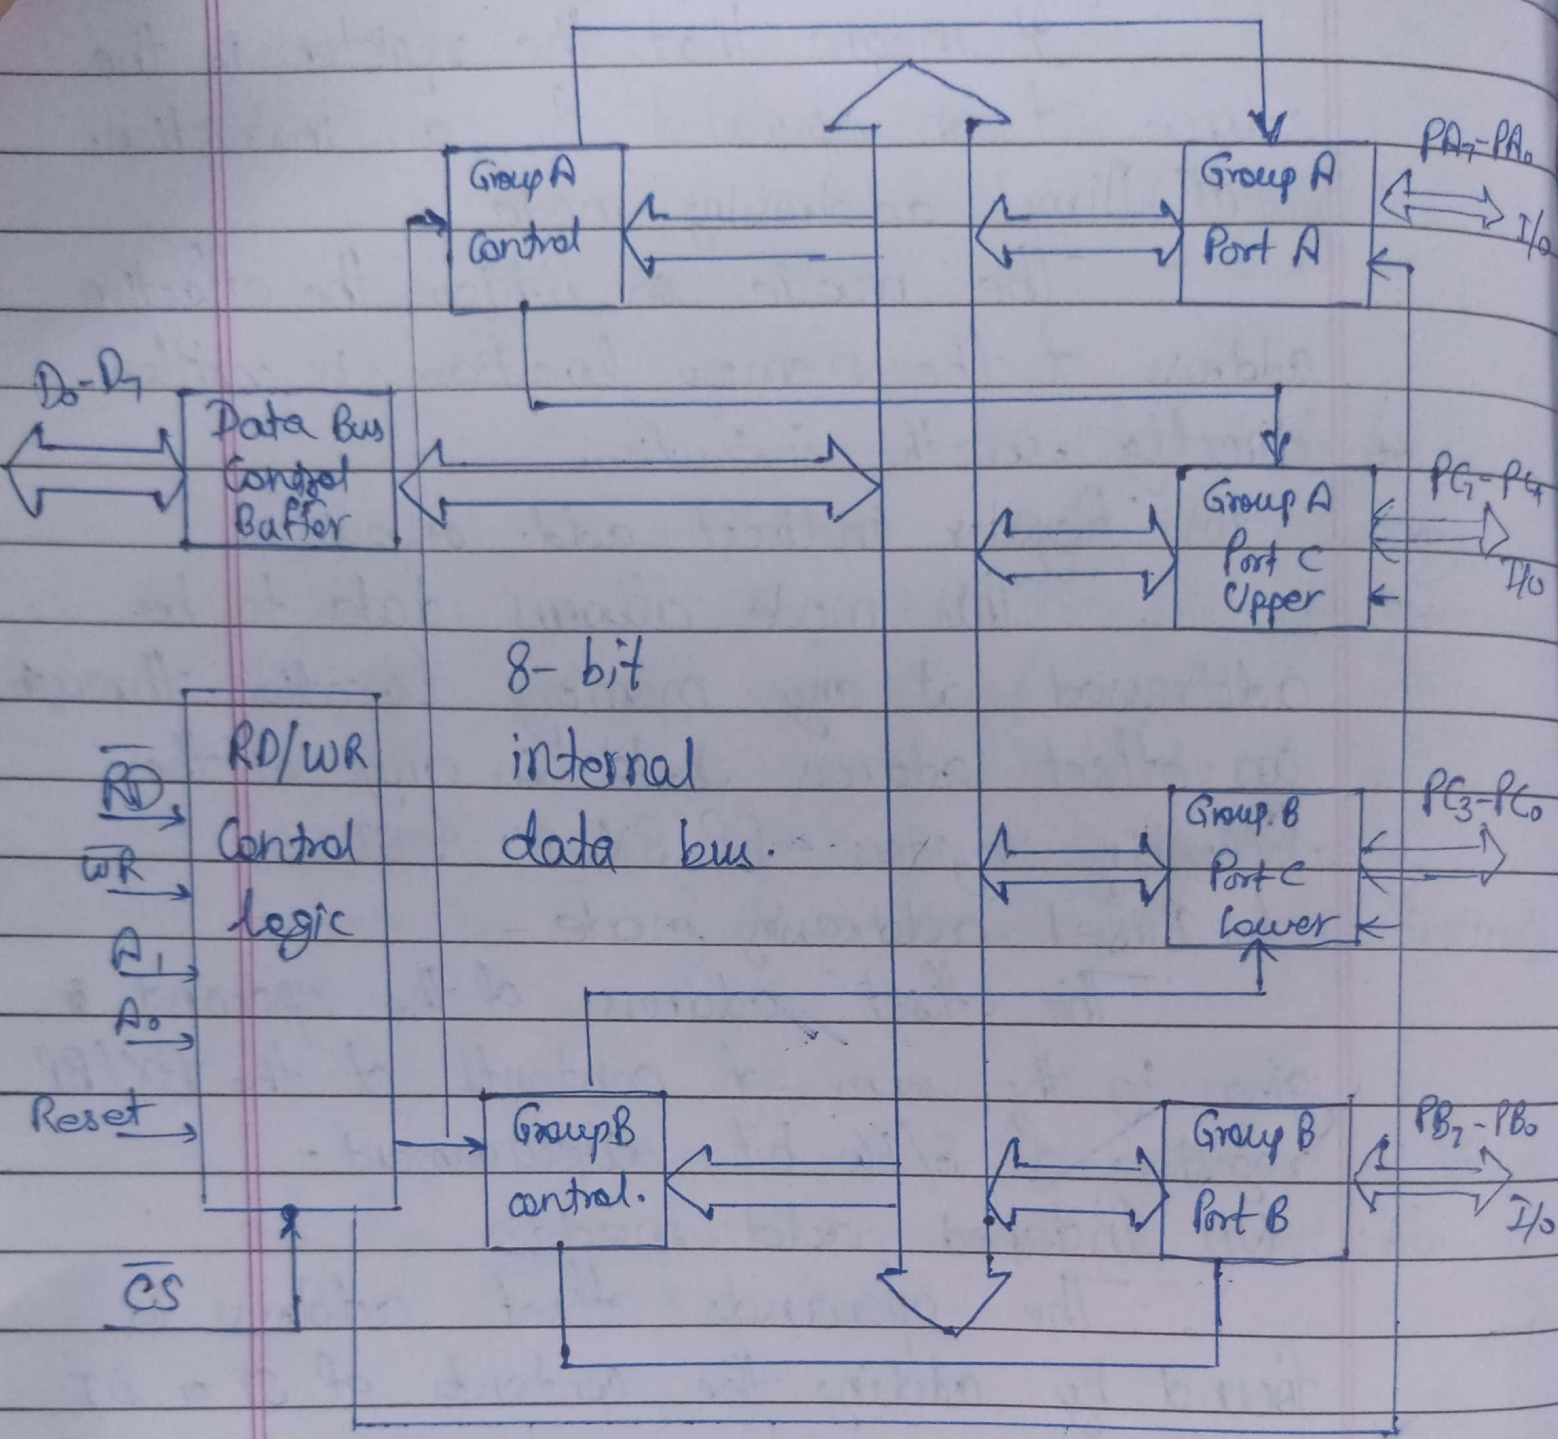 Group A
Control
Group A
Port A
PA₇-PA₀
I/O
D₀-D₇
Data Bus
Control
Buffer
Group A
Port C
Upper
PC₇-PC₄
I/O
8-bit
internal
data bus.
R̅D̅
W̅R̅
A₁
A₀
Reset
C̅S̅
RD/WR
Control
logic
Group.B
Port C
Lower
PC₃-PC₀
Group B
control.
Group B
Port B
PB₇-PB₀
I/O